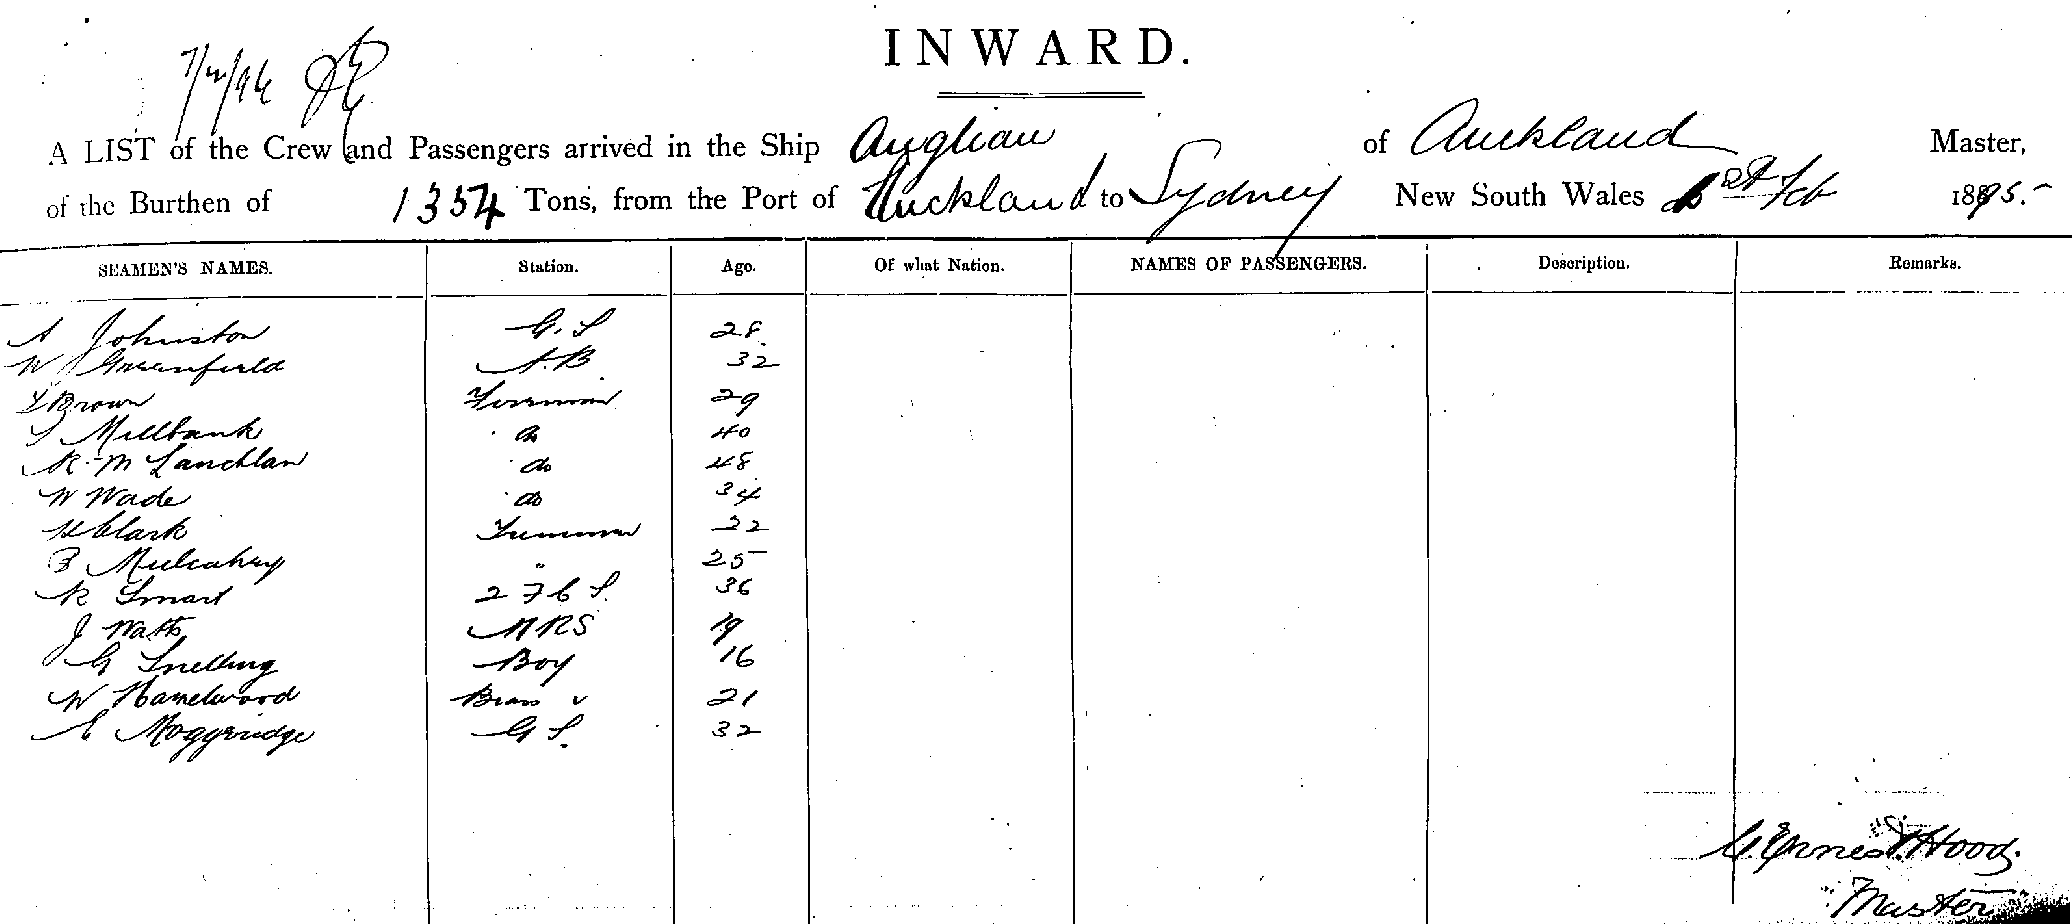 INWARD.
7/2/96
A LIST of the Crew and Passengers arrived in the Ship Anglian of Auckland Master,
of the Burthen of 1354 Tons, from the Port of Auckland to Sydney New South Wales 1st Feb 1895.
SEAMEN'S NAMES. Station. Age. Of what Nation. NAMES OF PASSENGERS. Description. Remarks.
A Johnston G. S 28
W Greenfield A.B 32
Brown Fireman 29
Millbank do 40
R. M Lauchlan do 48
W Wade do 34
H Clark Trimmer 22
B Mulcahey " 25
R Smart 2 36
J Watts MRS 19
G Snelling Boy 16
W Hazelwood 21
E Moggridge G S. 32
G. Ernest Hood.
Master